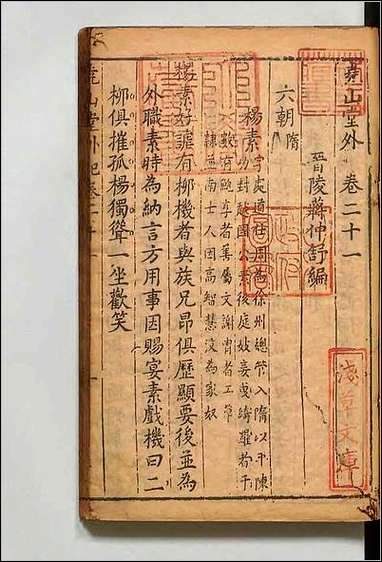 堯山堂外 卷二十一
晉陵蔣仲舒編
六朝 隋
楊素 字處道在周為徐州總管入隋以平陳
功封越國公素後庭妓妾曳綺羅者千
數有鮑亨者善屬文謝冑者工草
隸並南士人因高智慧沒為家奴
楊素好謔有柳機者與族兄昂俱歷顯要後並為
外職素時為納言方用事因賜宴素戲機曰二
柳俱摧孤楊獨聳一坐歡笑
堯山堂外紀卷二十一
淺草文庫